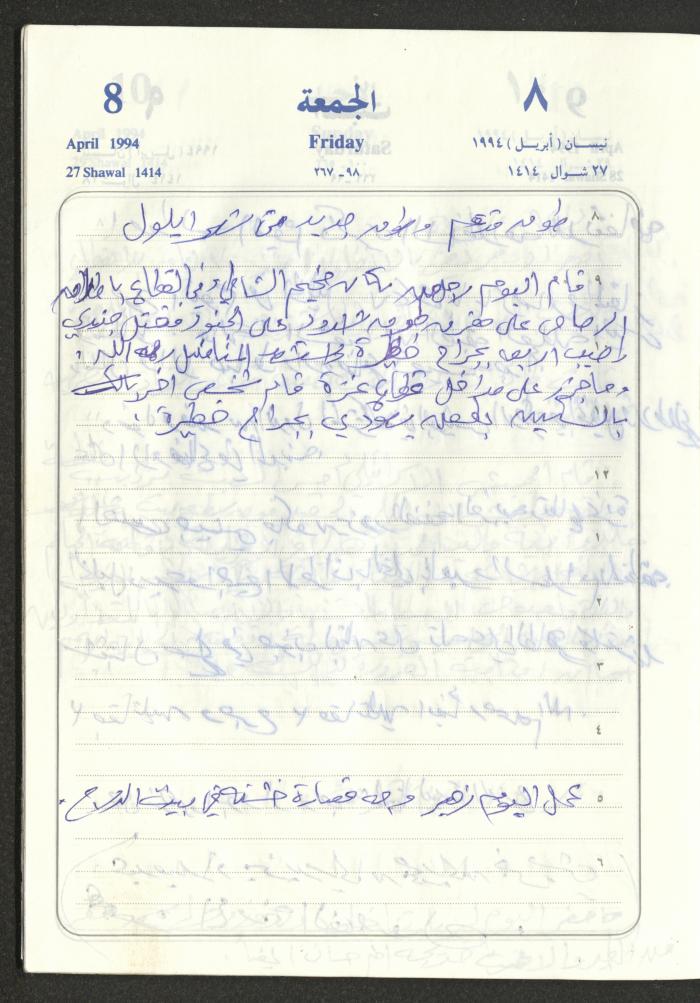 8 الجمعة ٨
April 1994 Friday نيسان (أبريل) ١٩٩٤
27 Shawal 1414 ٩٨-٢٦٧ ٢٧ شوال ١٤١٤
٨ طوق قديم وطوق جديد حتى شهر ايلول
٩ قام اليوم رجل من سكان مخيم الشاطئ في القطاع باطلاق
الرصاص على مفرق طوق اشدود على الجنود فقتل جندي
واصيب اربعة بجراح خطيرة واستشهد المناضل رحمه الله.
وحاجز على مداخل قطاع غزة قام شخص اخر
بالسكين بطعن يهودي بجراح خطيرة.
١٢
١
٢
٣
٤
٥ عمل اليوم زهير وجه قصارة خشنة في بيت الدرج.
٦